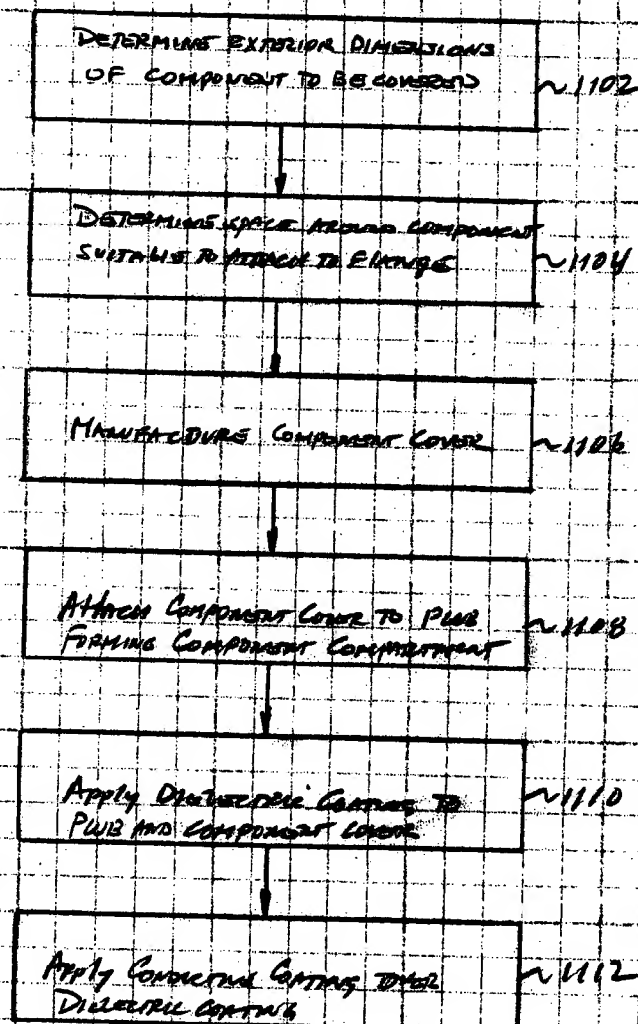 DETERMINE EXTERIOR DIMENSIONS
OF COMPONENT TO BE COVERED
~1102
DETERMINE SPACE AROUND COMPONENT
SUITABLE TO ATTACH TO FLANGE
~1104
MANUFACTURE COMPONENT COVER
~1106
Attach Component Cover To PWB
FORMING COMPONENT COMPARTMENT
~1108
Apply Dielectric Coating To
PWB AND COMPONENT COVER
~1110
Apply Conductive Coating Over
Dielectric Coating
~1112